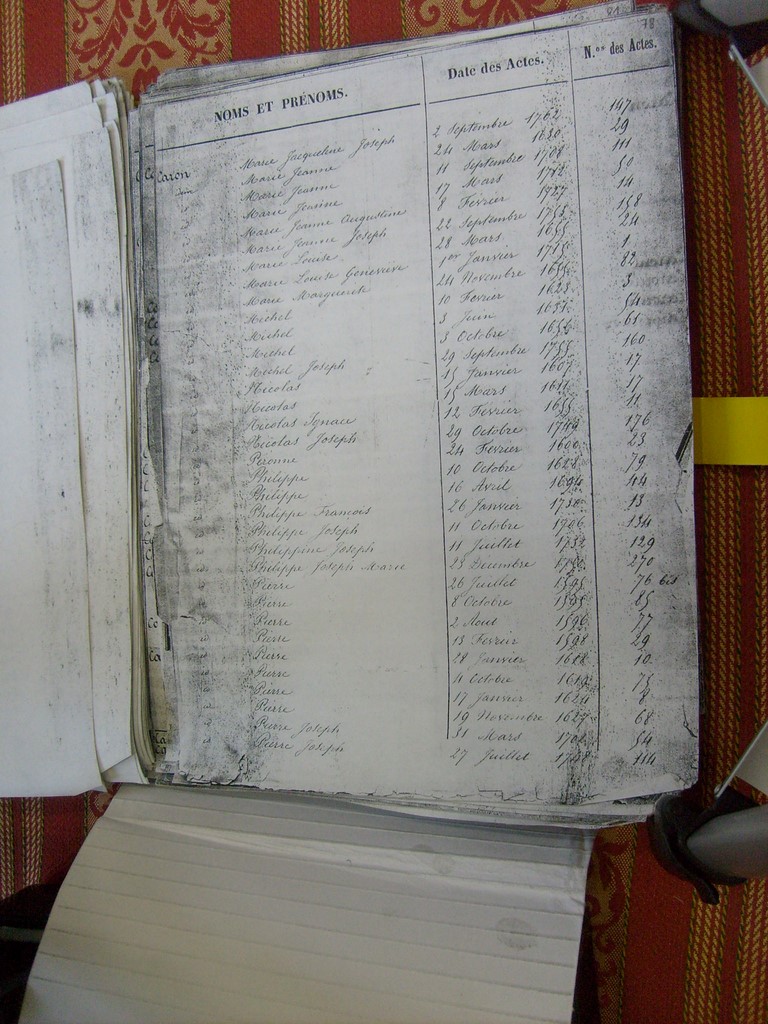 91 78
NOMS ET PRÉNOMS. Date des Actes. N.os des Actes.
Caron Marie Jacqueline Joseph 2 Septembre 1762 147
Marie Jeanne 24 Mars 1680 29
Marie Jeanne 11 Septembre 1708 111
Marie Jeanne 17 Mars 50
Marie Jeanne Augustine 8 Fevrier 1727 14
Marie Jeanne Joseph 22 Septembre 158
Marie Louise 28 Mars 24
Marie Louise Genevieve 1er Janvier 1
Marie Marguerite 24 Novembre 82
Michel 10 Fevrier 1623 3
Michel 3 Juin 1637 54
Michel 3 Octobre 1656 61
Michel Joseph 29 Septembre 160
Nicolas 15 Janvier 1607 17
Nicolas 15 Mars 1611 17
Nicolas Ignace 12 Fevrier 11
Nicolas Joseph 29 Octobre 176
Péronne 24 Fevrier 1600 23
Philippe 10 Octobre 1628 79
Philippe 16 Avril 1694 44
Philippe Francois 26 Janvier 13
Philippe Joseph 11 Octobre 1706 134
Philippine Joseph 11 Juillet 1732 129
Philippe Joseph Marie 23 Décembre 270
Pierre 26 Juillet 1595 76 bis
Pierre 8 Octobre 1595 85
Pierre 2 Aout 1596 77
Pierre 13 Fevrier 1598 29
Pierre 28 Janvier 1618 10
Pierre 4 Octobre 1619 75
Pierre 17 Janvier 1624 8
Pierre 19 Novembre 1627 68
Pierre Joseph 31 Mars 1702 54
Pierre Joseph 27 Juillet 114